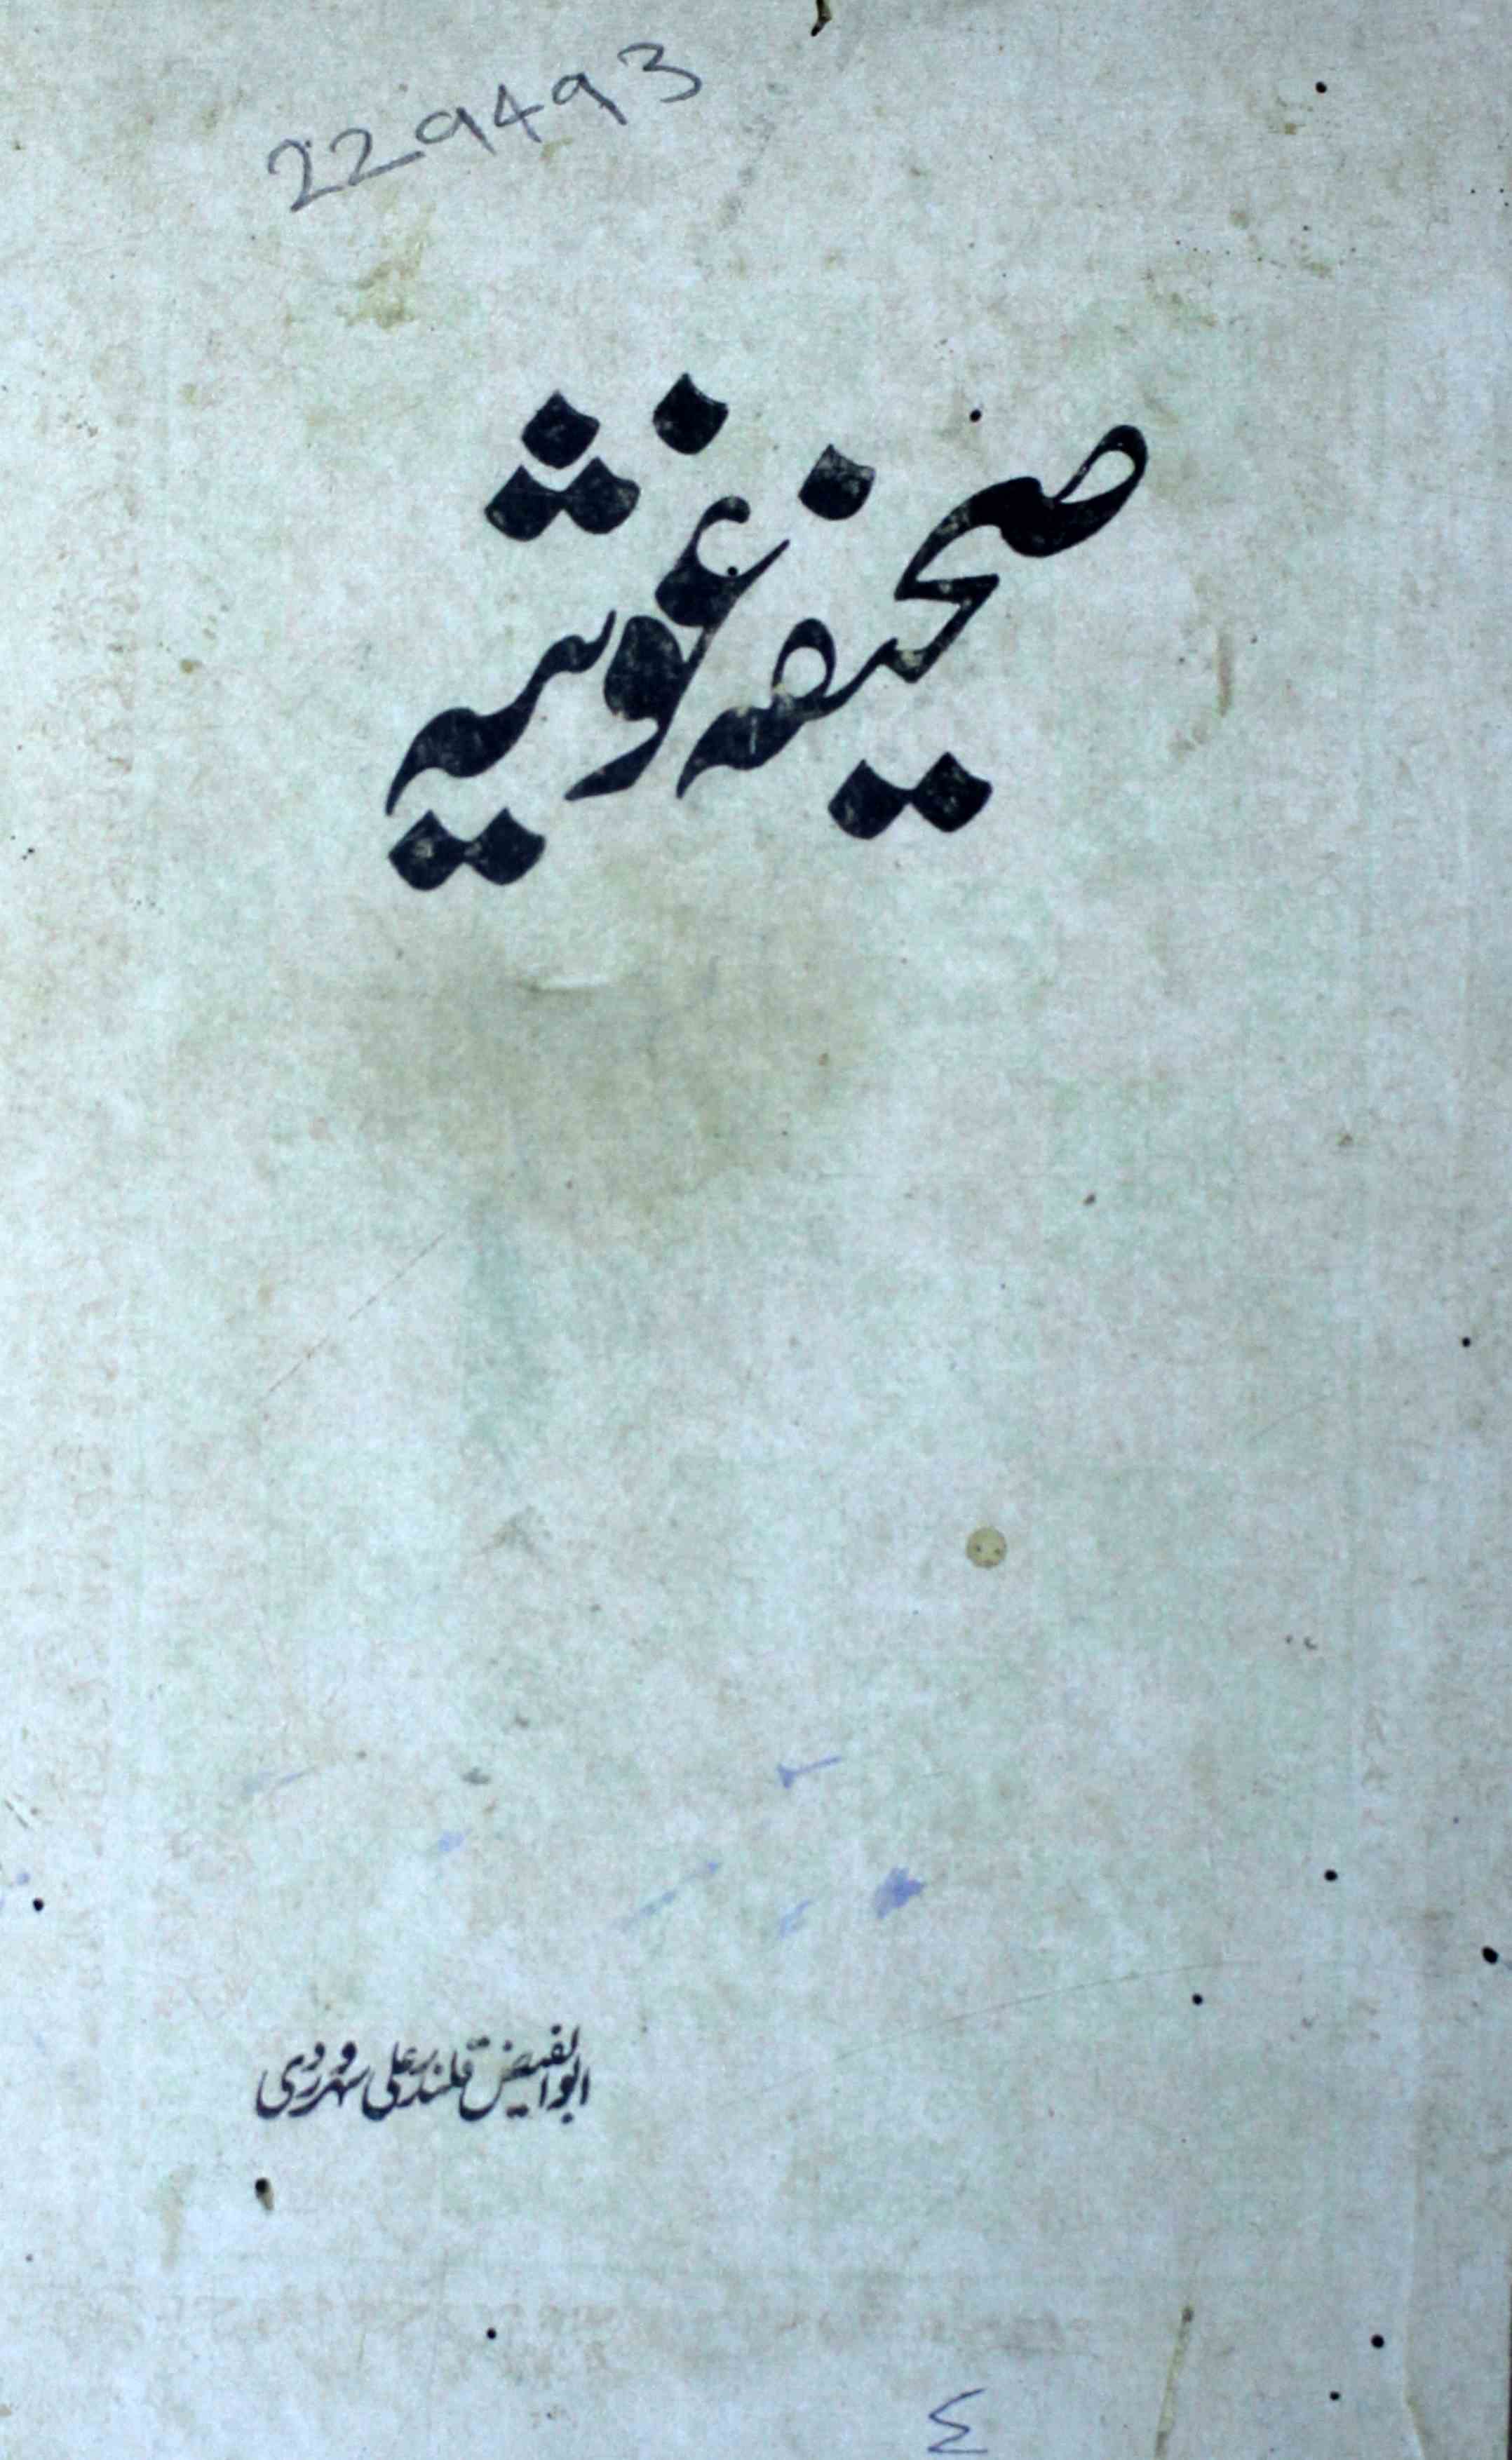 229493
صحیفہ غوثیہ
ابوالفیض قلندر علی سہروردی
٤